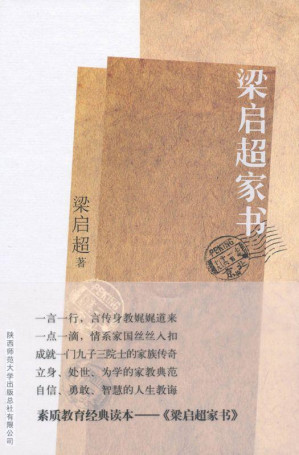 梁启超家书
梁启超 著
PEKING
一言一行，言传身教娓娓道来
一点一滴，情系家国丝丝入扣
成就一门九子三院士的家族传奇
立身、处世、为学的家教典范
自信、勇敢、智慧的人生教诲
素质教育经典读本——《梁启超家书》
陕西师范大学出版总社有限公司